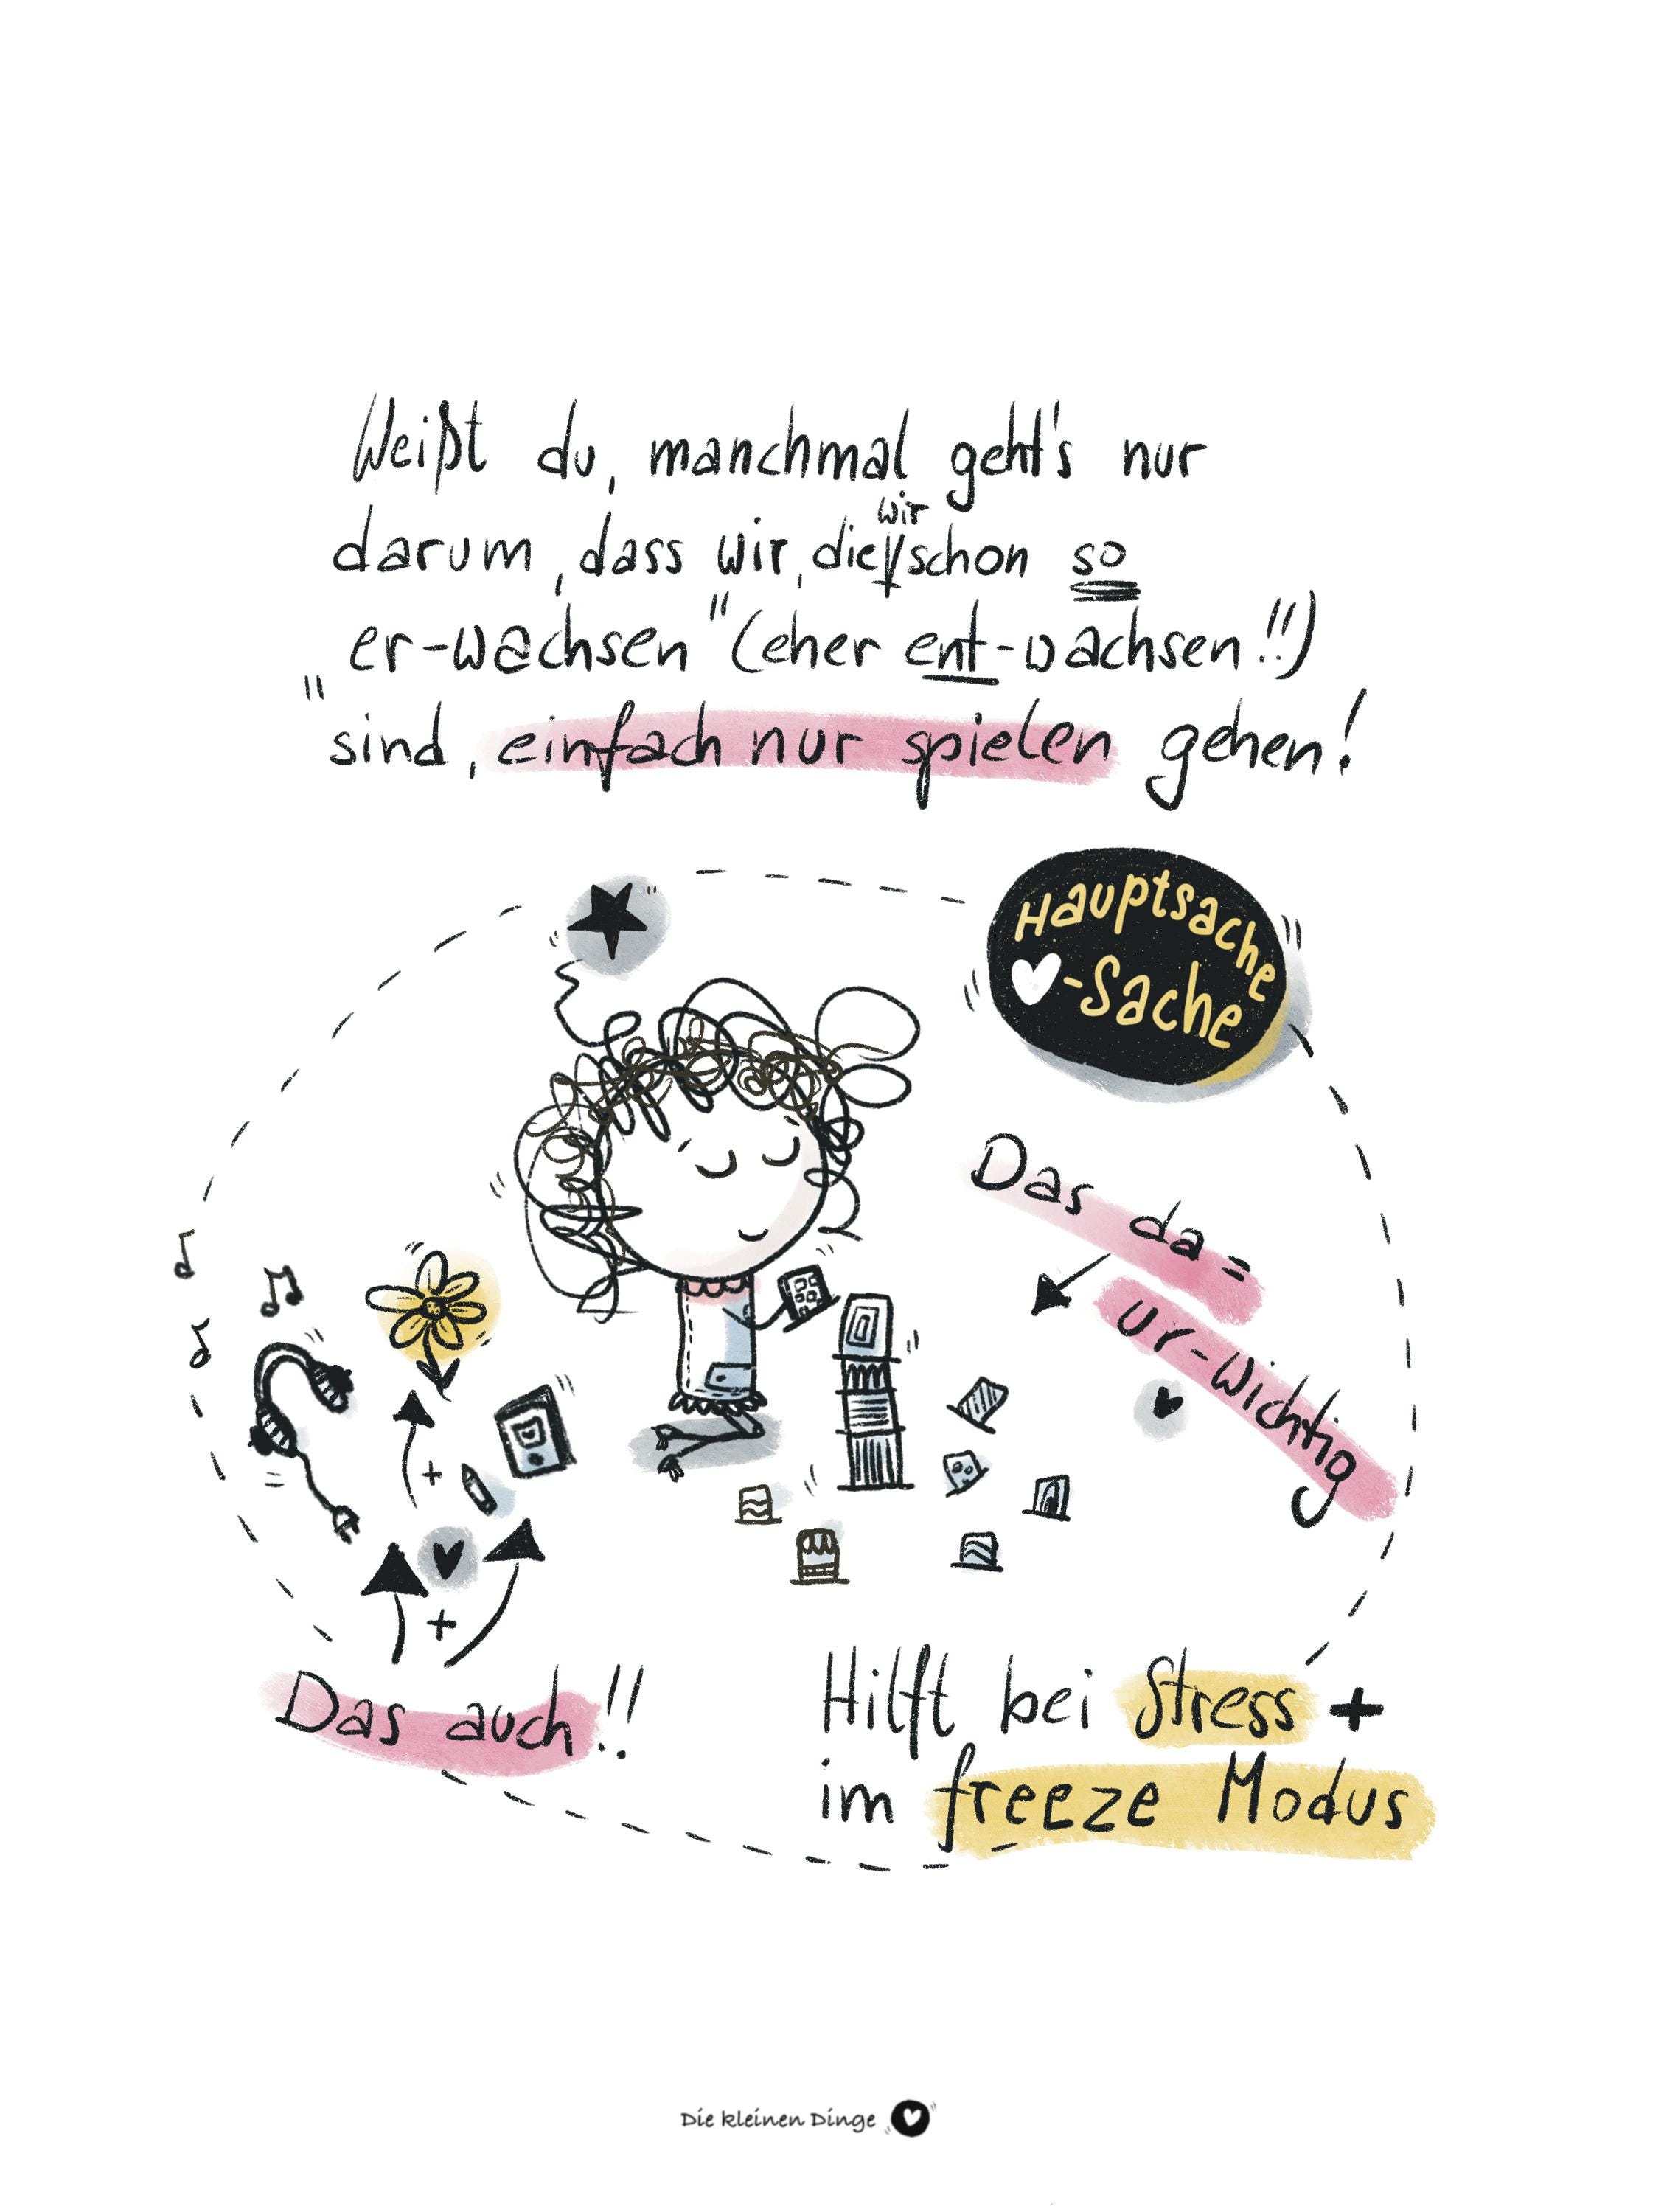 Weißt du, manchmal geht's nur
darum, dass wir, die wir schon so
er-wachsen" (eher ent-wachsen!!)
"sind, einfach nur spielen gehen!
Hauptsache
♥-Sache
Das da =
ur-wichtig
Das auch!!
Hilft bei Stress +
im freeze Modus
Die kleinen Dinge